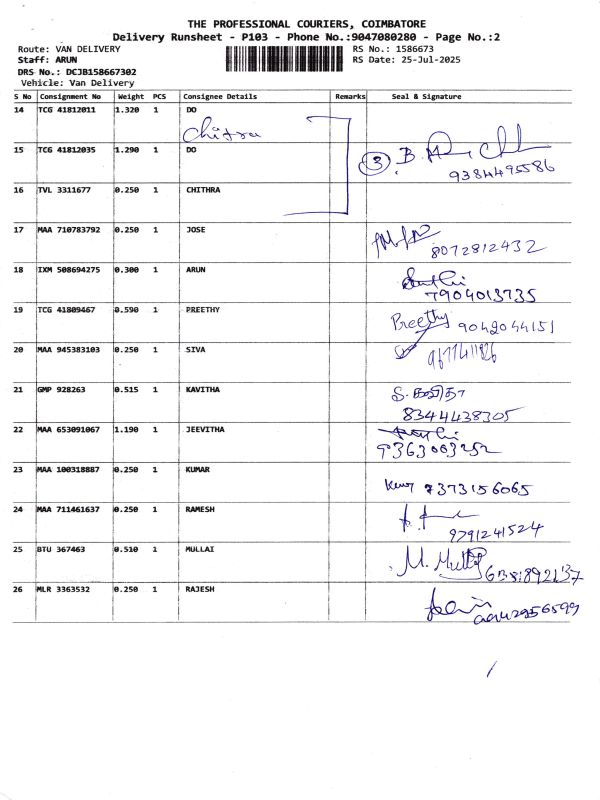 THE PROFESSIONAL COURIERS, COIMBATORE
Delivery Runsheet - P103 - Phone No.:9047080280 - Page No.:2
Route: VAN DELIVERY RS No.: 1586673
Staff: ARUN RS Date: 25-Jul-2025
DRS No.: DCJB158667302
Vehicle: Van Delivery
S No Consignment No Weight PCS Consignee Details Remarks Seal & Signature
14 TCG 41812011 1.320 1 DO
Chitra
15 TCG 41812035 1.290 1 DO
3 B.
9384495586
16 TVL 3311677 0.250 1 CHITHRA
17 MAA 710783792 0.250 1 JOSE
8072812432
18 IXM 508694275 0.300 1 ARUN
7904013735
19 TCG 41809467 0.590 1 PREETHY
Preethy 9042044151
20 MAA 945383103 0.250 1 SIVA
21 GMP 928263 0.515 1 KAVITHA
S. கவிதா
8344438305
22 MAA 653091067 1.190 1 JEEVITHA
9363003252
23 MAA 100318887 0.250 1 KUMAR
7373156065
24 MAA 711461637 0.250 1 RAMESH
9791241524
25 BTU 367463 0.510 1 MULLAI
M. Mullai
26 MLR 3363532 0.250 1 RAJESH